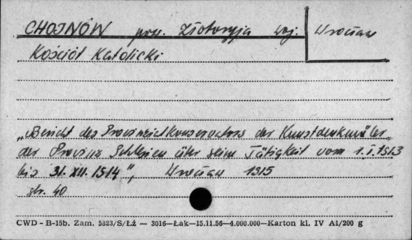 CHOJNÓW pow. Złotoryja woj. Wrocław
Kościół Katolicki
„Bericht des Provinzialkonservators der Kunstdenkmäler
der Provinz Schlesien über seine Tätigkeit vom 1.I.1913
bis 31.XII.1914", Wrocław 1915
str. 40
CWD - B-15b. Zam. 5323/S/Łż — 3016—Łak—15.11.56—4.000.000—Karton kl. IV A1/200 g